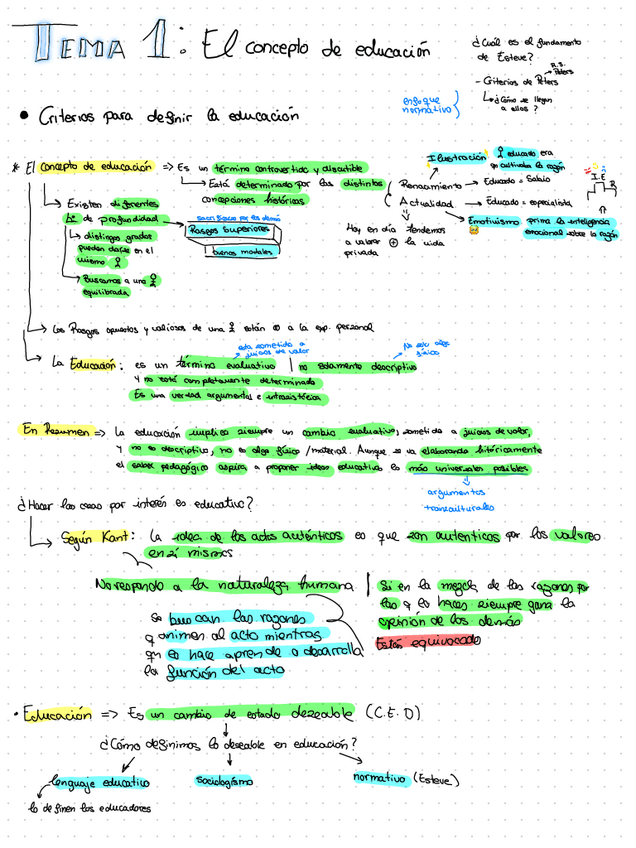 TEMA 1: El concepto de educación
¿Cuál es el fundamento
de Esteve?
R.S.
Peters
- Criterios de Peters
↳ ¿Cómo se llegan
a ellos?
enfoque
normativo
• Criterios para definir la educación
* El concepto de educación => Es un término controvertido y discutible
↳ Está determinado por las distintas
concepciones históricas
Ilustración educado era
cultivaba la razón
Renacimiento → Educado = Sabio
Actualidad → Educado = especialista
I.E
R
Emotivismo prima la inteligencia
emocional sobre la razón
Hoy en día tendemos
a valorar ⊕ la vida
privada
↳ Existen diferentes
de profundidad
↳ distingos grados
pueden darse en el
mismo
Rasgos superiores
buenos modales
↳ Buscamos a una
equilibrada
↳ Los Rasgos opuestos y valiosos de una están a la exp. personal
esta sometido a
juicios de valor
No es algo
físico
↳ La Educación: es un término evaluativo | no solamente descriptivo
Y no está completamente determinado
Es una verdad argumental e intrahistórica
En Resumen => La educación implica siempre un cambio evaluativo, sometido a juicios de valor,
y no es descriptivo, no es algo físico / material. Aunque se va elaborando históricamente
el saber pedagógico aspira a proponer ideas educativas lo más universales posibles
argumentos
transculturales
¿Hacer las cosas por interés es educativo?
↳ Según Kant: La idea de los actos auténticos es que son autenticos por los valores
en sí mismos
No respondo a la naturaleza humana
se buscan las razones
q animen al acto mientras
que se hace aprende a desarrollar
la función del acto
Si en la mezcla de las razones por
las q lo haces siempre gana la
opinión de los demás
Estás equivocado
• Educación => Es un cambio de estado deseable (C.E.D)
¿Cómo definimos lo deseable en educación?
lenguaje educativo
sociologismo
normativo (Esteve)
lo definen los educadores